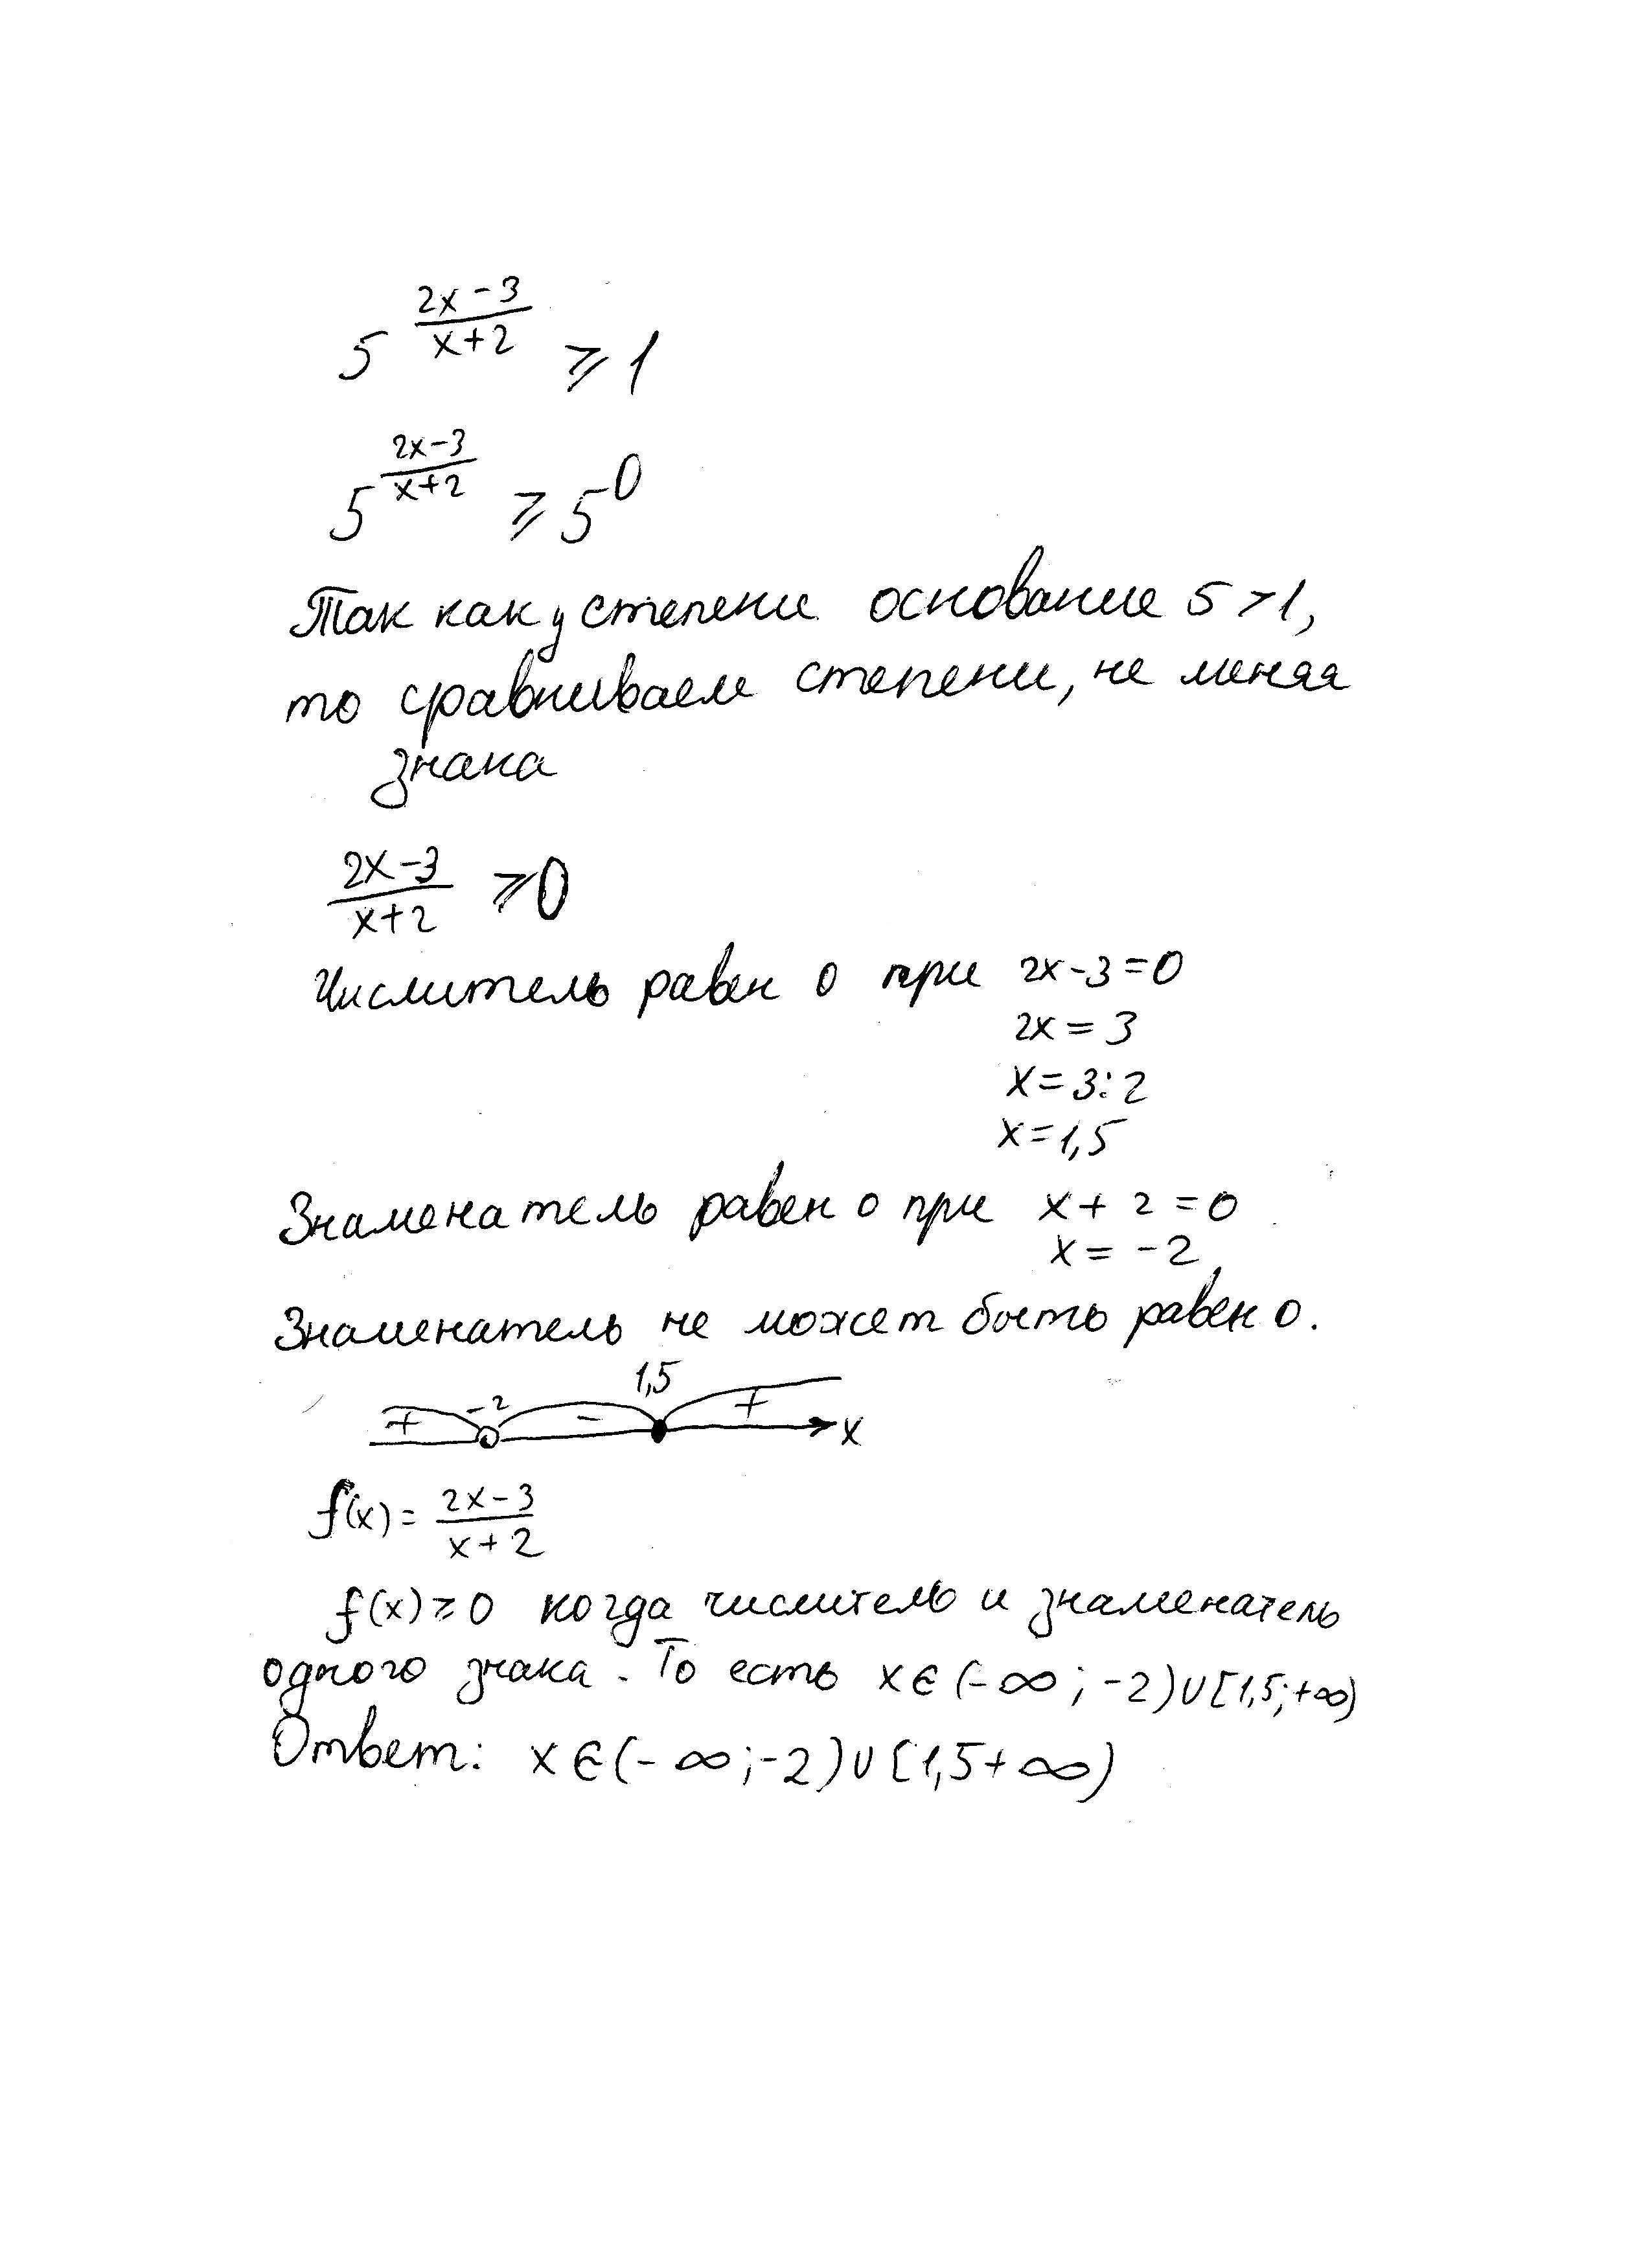 5^((2x-3)/(x+2)) ⩾ 1
5^((2x-3)/(x+2)) ⩾ 5^0
Так как у степени основание 5>1,
то сравниваем степени, не меняя
знака
(2x-3)/(x+2) ⩾ 0
Числитель равен 0 при 2x-3=0
2x = 3
x = 3:2
x = 1,5
Знаменатель равен 0 при x + 2 = 0
x = -2
Знаменатель не может быть равен 0.
1,5
+ -2 - + x
f(x) = (2x-3)/(x+2)
f(x) ⩾ 0 когда числитель и знаменатель
одного знака. То есть x ∈ (-∞; -2) ∪ [1,5; +∞)
Ответ: x ∈ (-∞; -2) ∪ [1,5 + ∞)